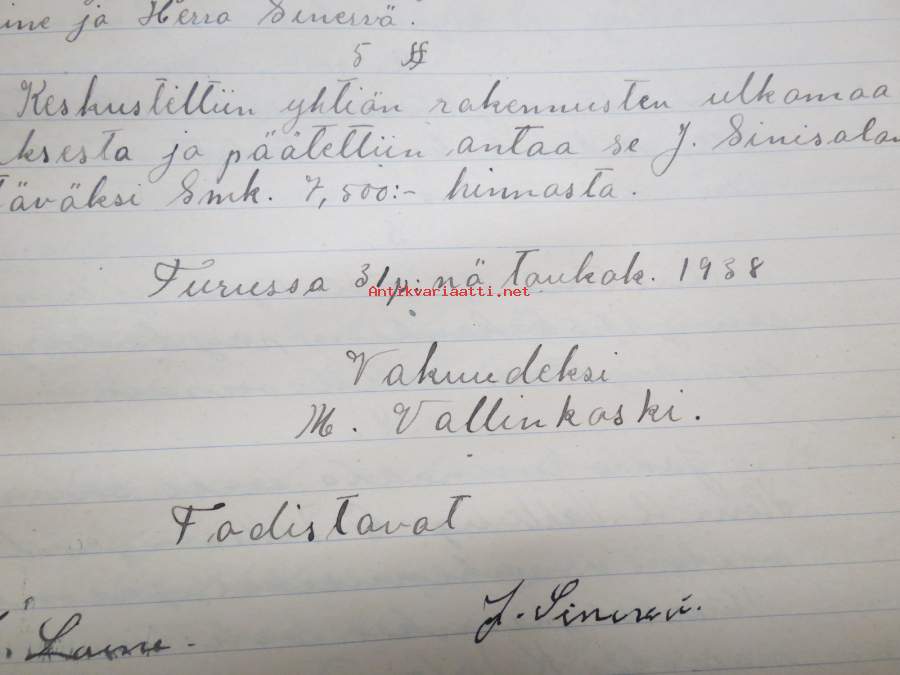 ine ja Herra Sinervä.
5 §
Keskusteltiin yhtiön rakennusten ulkomaa
ksesta ja päätettiin antaa se J. Sinisalon
täväksi Smk. 7,500:- hinnasta.
Turussa 31 p:nä toukok. 1938
Antikvariaatti.net
Vakuudeksi
M. Vallinkoski.
Todistavat
Laine. J. Sinervä.